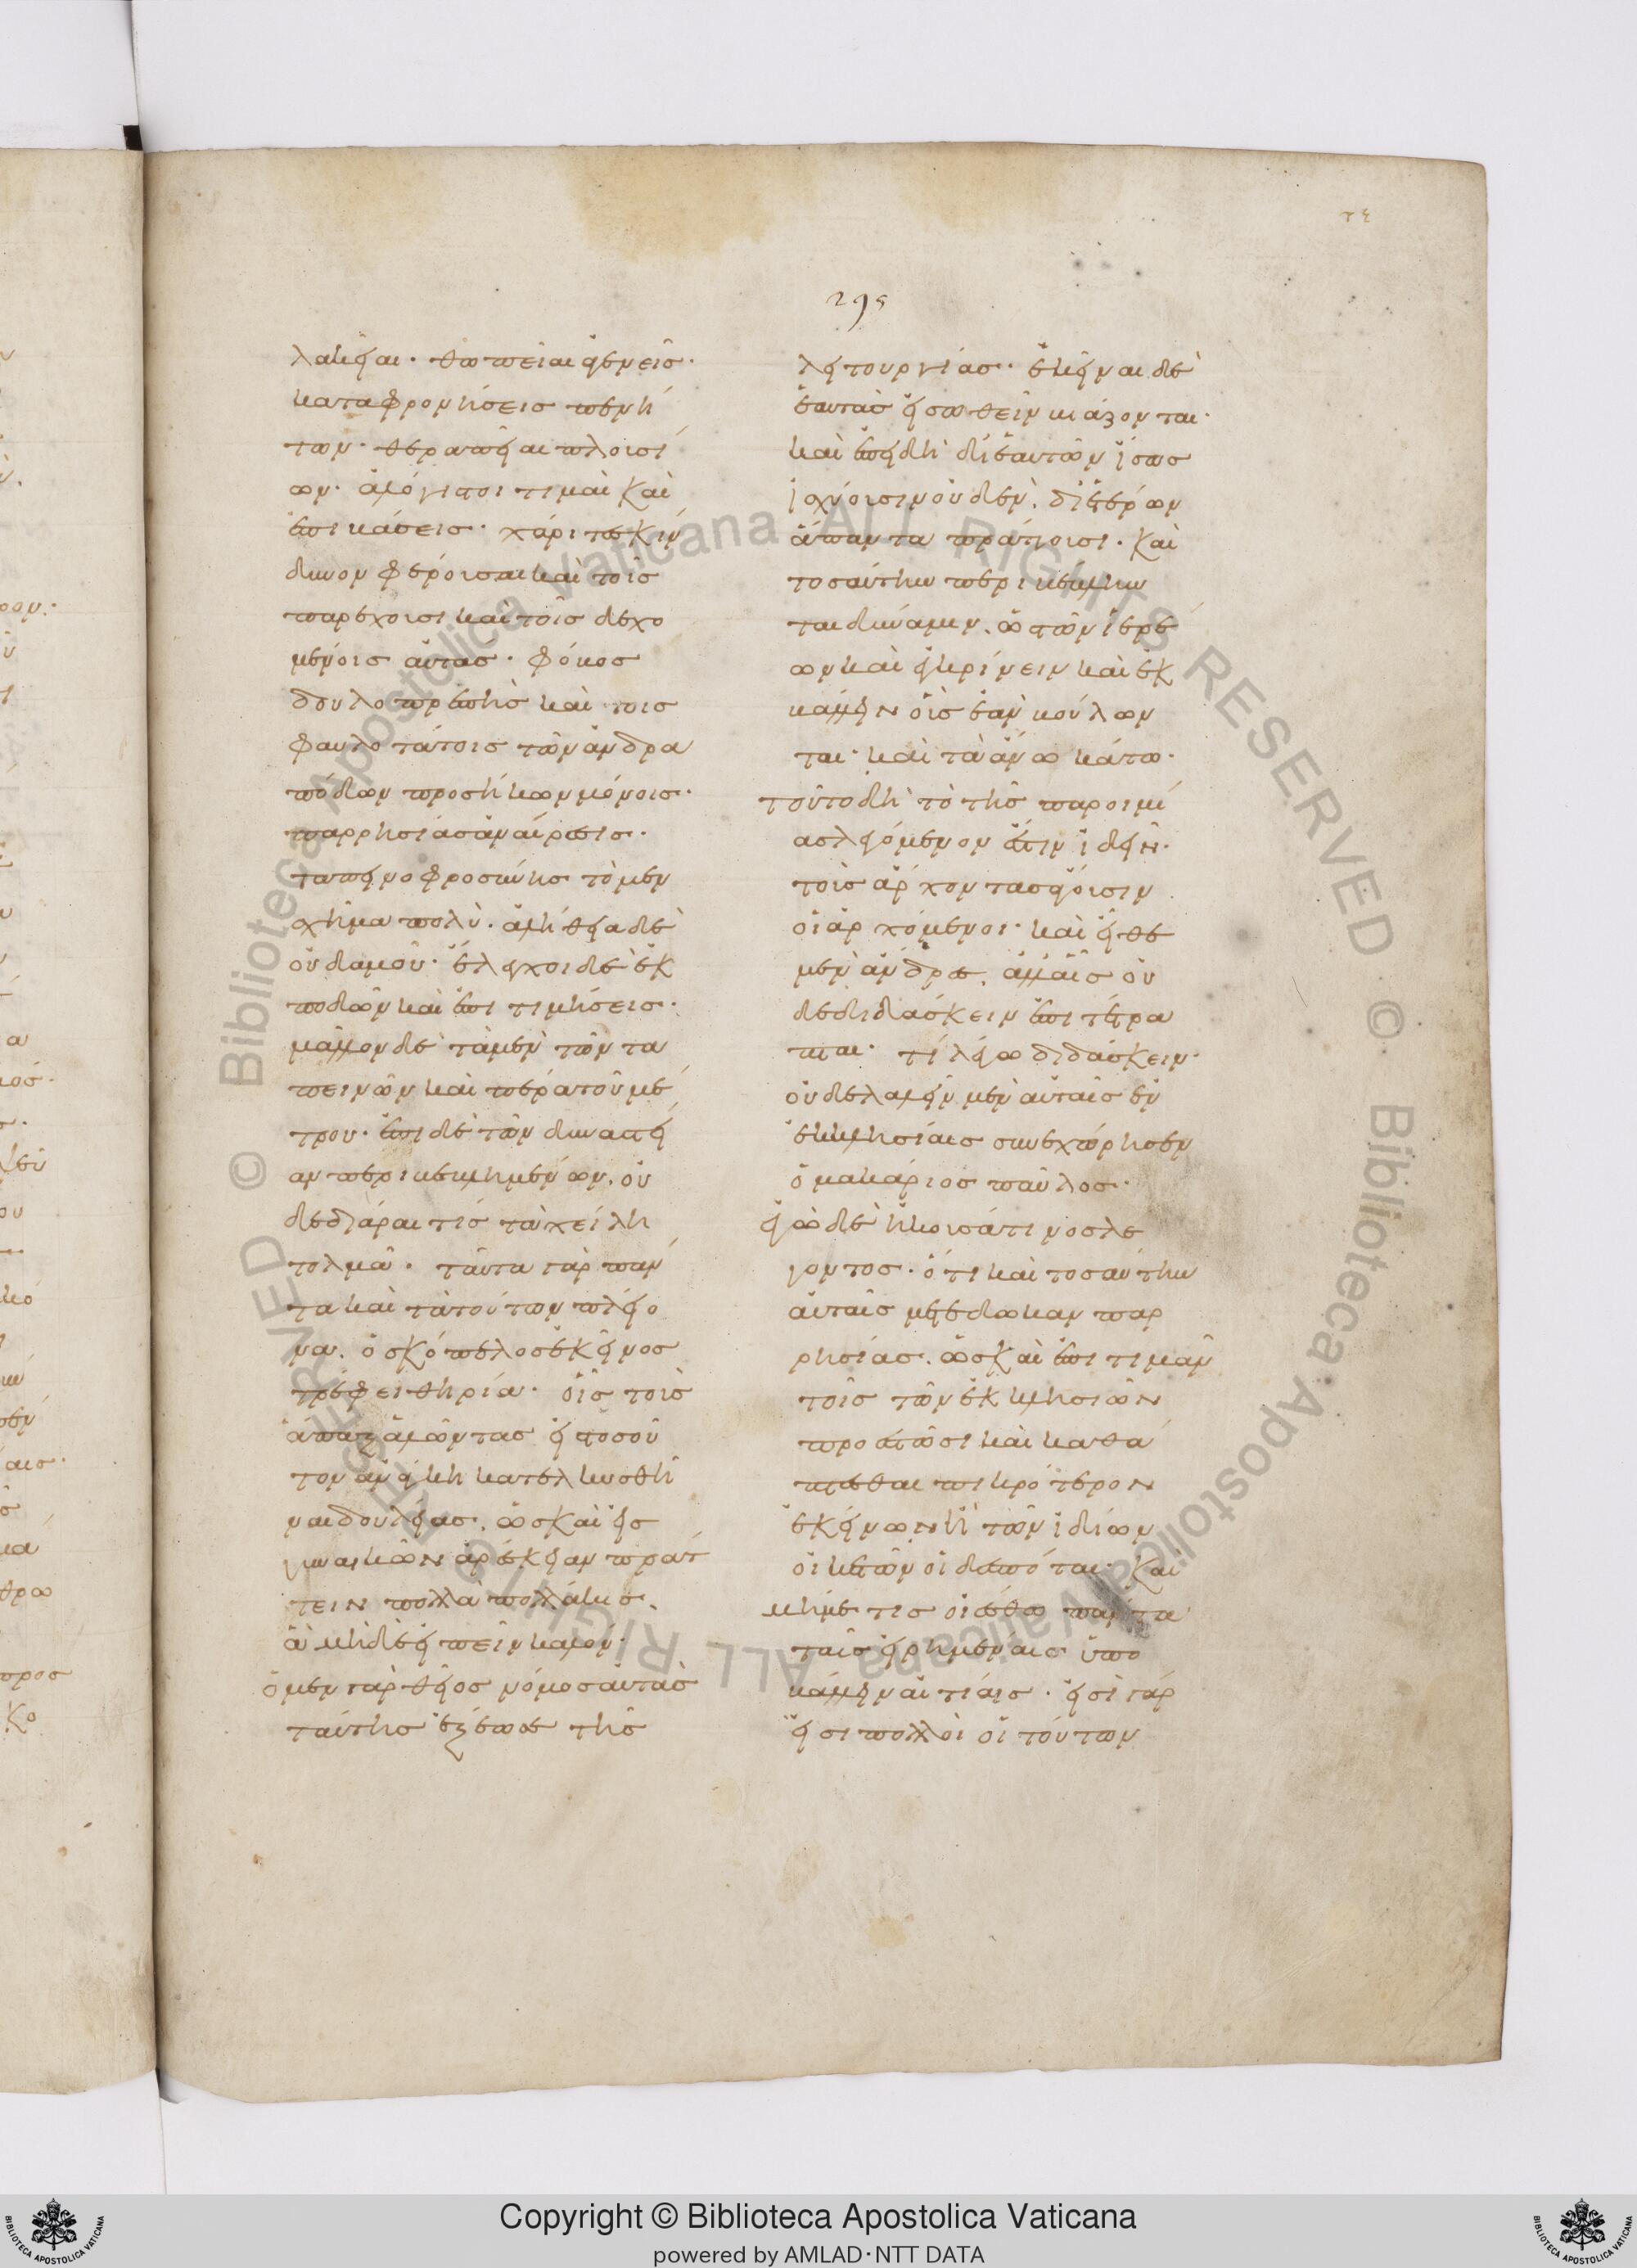 λακεῖαι. θωπεῖαι ἀγενεῖς.
καταφρονήσεις πενή
των. θεραπεῖαι πλουσί
ων. ἀλόγιστοι τιμαὶ καὶ
ἐπικάσεις. χάριτες κίν
δυνον φέρουσαι καὶ τοῖς
παρέχουσι καὶ τοῖς δεχο
μένοις αὐτάς. φόβος
δουλοπρεπὴς καὶ τοῖς
φαυλοτάτοις τῶν ἀνδρα
πόδων προσήκων μόνοις.
παρρησίας ἀναίρεσις.
ταπεινοφροσύνης τὸ μὲν
σχῆμα πολὺ. ἀλήθεια δὲ
οὐδαμοῦ. ἔλεγχοι δὲ ἐκ
ποδῶν καὶ ἐπιτιμήσεις.
μᾶλλον δὲ τὰ μὲν τῶν τα
πεινῶν καὶ πέρα τοῦ μέ
τρου. ἐπὶ δὲ τῶν δυναστεί
αν περιβεβλημένων. οὐ
δὲ διάραι τίς τὰ χείλη
τολμᾶ. ταῦτα γὰρ πάν
τα καὶ τὰ τούτων πλείο
να. ὁ σκόπελος ἐκεῖνος
τρέφει θηρία. οἷς τοὺς
ἅπαξ ἁλῶντας εἰς τοσοῦ
τον ἀνάγκη κατελκυσθῆ
ναι δουλείας. ὡς καὶ εἰς
γυναικῶν ἀρέσκειαν πράτ
τειν πολλὰ πολλάκις.
ἃ μηδὲ εἰπεῖν καλόν.
ὁ μὲν γὰρ θεῖος νόμος αὐτὰς
ταύτης ἐξέωσε τῆς
λειτουργίας. ἐκεῖναι δὲ
ἑαυτὰς εἰσωθεῖν βιάζονται.
καὶ ἐπειδὴ δι' ἑαυτῶν ἴσως
ἰσχύουσιν οὐδὲν. δι' ἑτέρων
ἅπαντα πράττουσι. καὶ
τοσαύτην περιβέβλην
ται δύναμιν. ὡς τῶν ἱερέ
ων καὶ ἐγκρίνειν καὶ ἐκ
βάλλειν οὓς ἐὰν βούλων
ται. καὶ τὰ ἄνω κάτω.
τοῦτο δὴ τὸ τῆς παροιμί
ας λεγόμενον ἔστιν ἰδεῖν.
τοὺς ἄρχοντας ἄγουσιν
οἱ ἀρχόμενοι. καὶ εἴθε
μὲν ἄνδρες. ἀλλ' αἷς οὐ
δὲ διδάσκειν ἐπιτέτρα
πται. τί λέγω διδάσκειν.
οὐδὲ λαλεῖν μὲν αὐταῖς ἐν
ἐκκλησίαις συνεχώρησεν
ὁ μακάριος παῦλος.
ἐγὼ δὲ ἤκουσά τινος λέ
γοντος. ὅτι καὶ τοσαύτην
αὐταῖς μετέδωκαν παρ
ρησίας. ὡς καὶ ἐπιτιμᾶν
τοῖς τῶν ἐκκλησιῶν
προεστῶσι καὶ καθά
πτεσθαι πικρότερον
ἐκείνων ἢ τῶν ἰδίων
οἰκετῶν οἱ δεσπόται. καὶ
μὴ μέ τις οἰέσθω πάντα
ταῖς εἰρημέναις ὑπο
βάλλειν αἰτίαις. εἰσὶ γάρ
εἰσι πολλοὶ οἱ τούτων